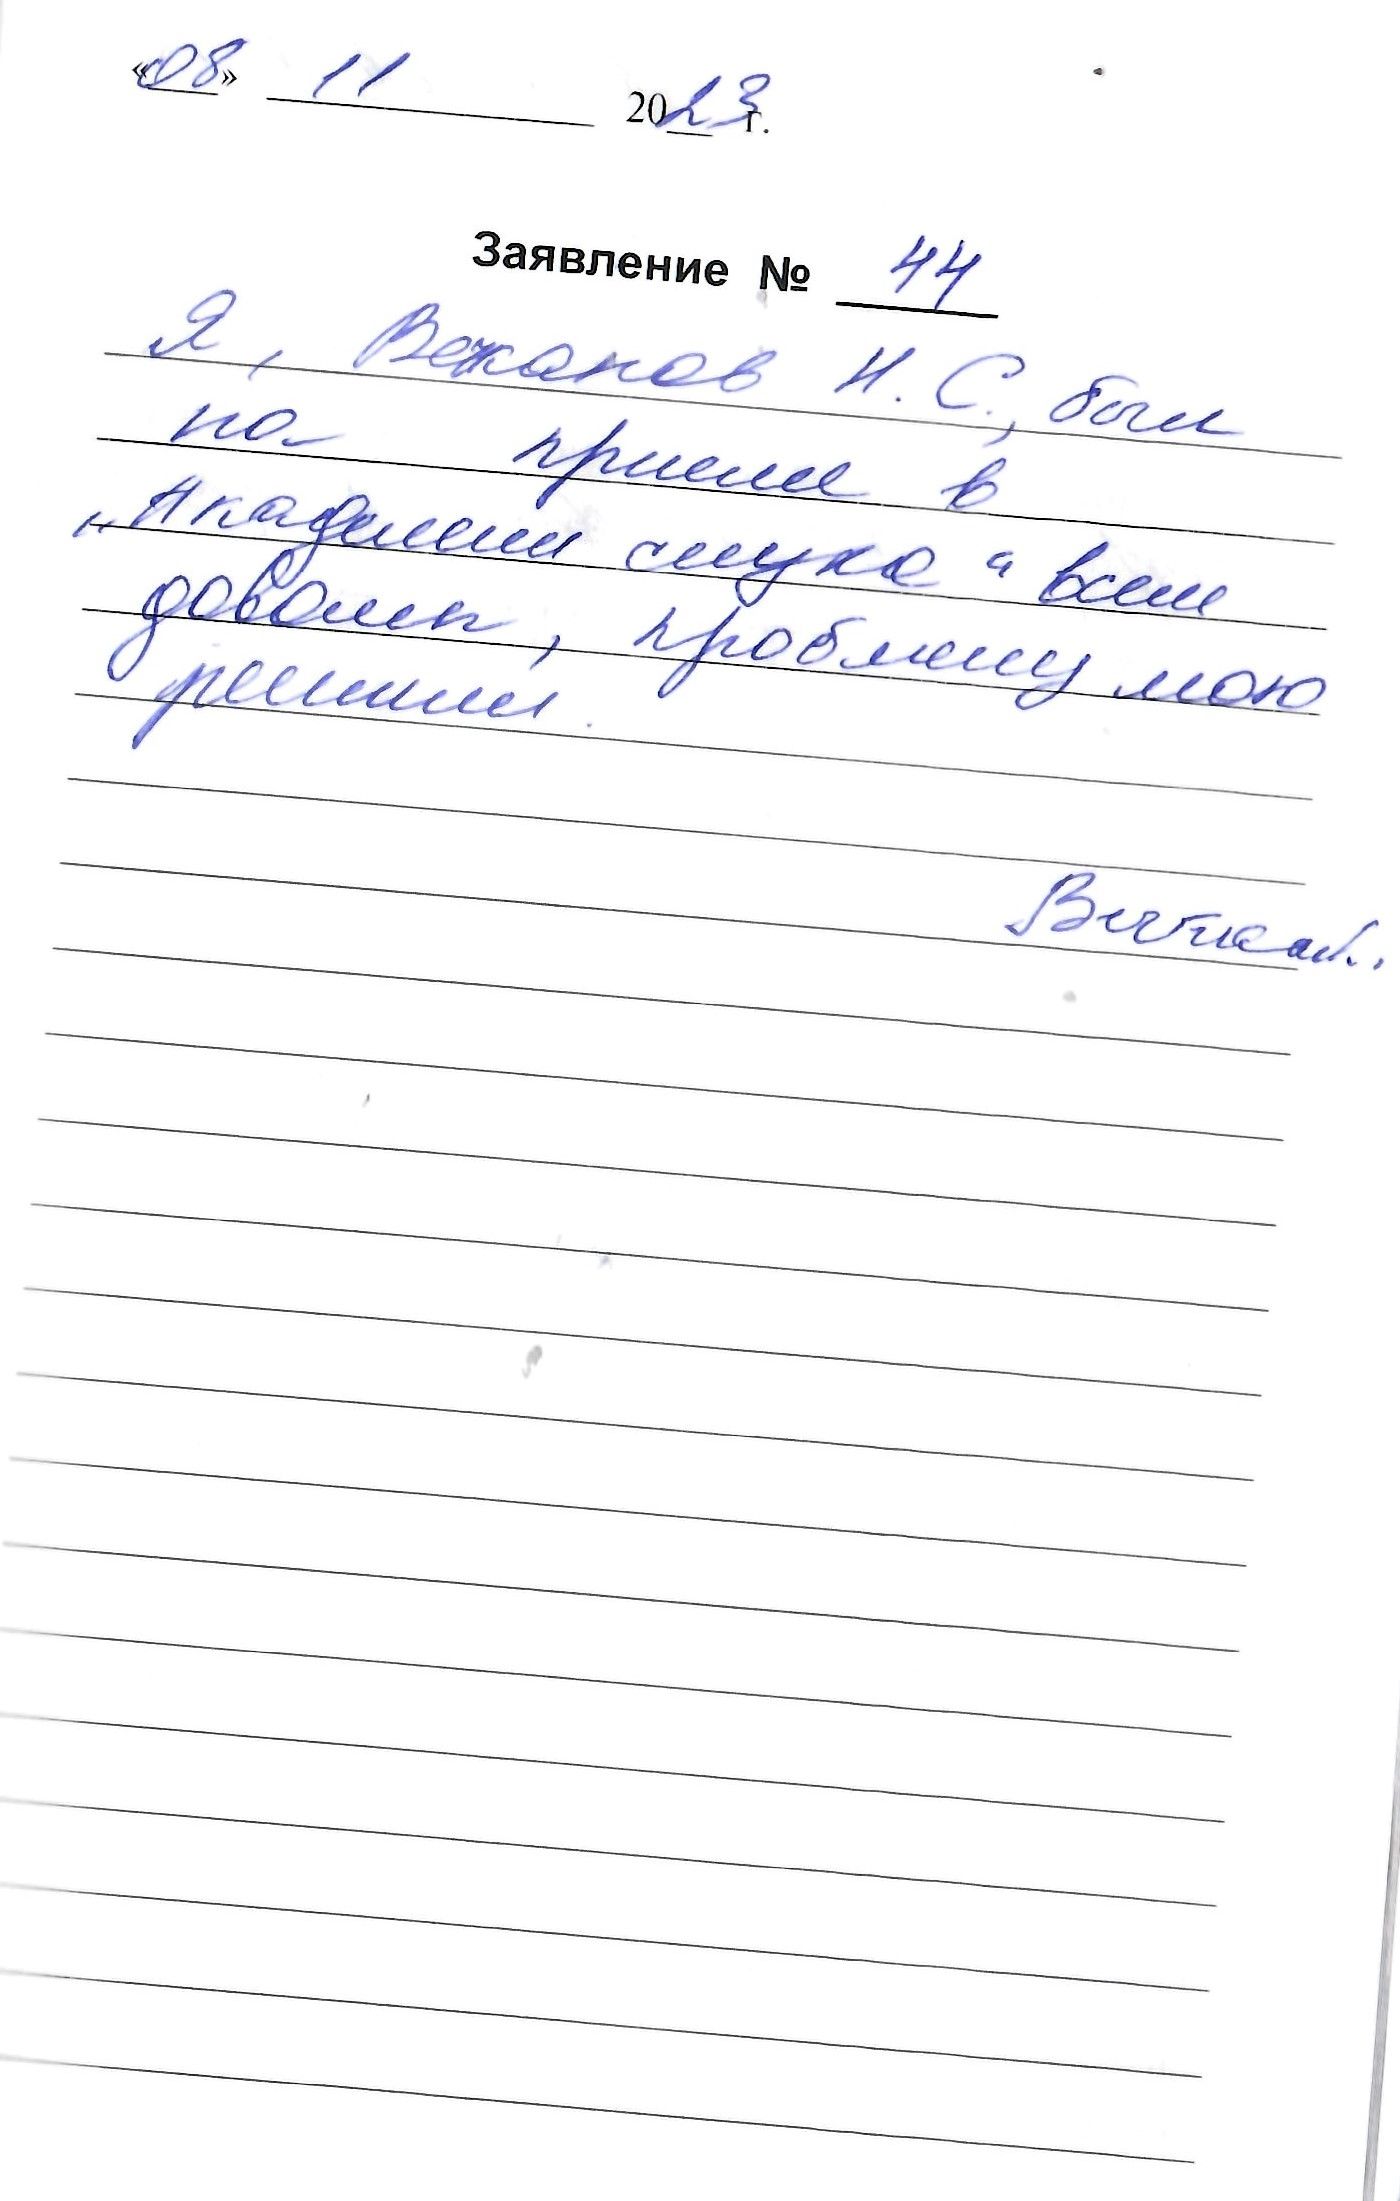 «08» 11 2023 г.
Заявление № 44
Я, Веканов Н. С., был
на приеме в
„Академии слуха“ всем
доволен, проблему мою
решили.